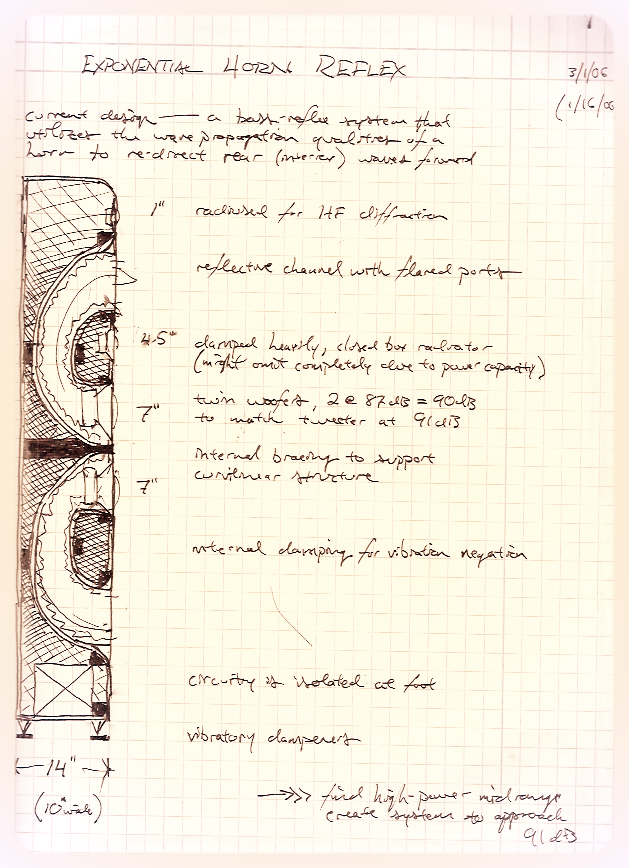 EXPONENTIAL HORN REFLEX
3/1/06
(1/16/06
current design — a bass-reflex system that
utilizes the wave propagation qualities of a
horn to re-direct rear (interior) waves forward
1" radiused for HF diffraction
reflective channel with flared ports
4.5" damped heavily, closed box radiator
(might omit completely due to power capacity)
twin woofers, 2 @ 87dB = 90dB
7" to match tweeter at 91dB
internal bracing to support
7" curvilinear structure
internal damping for vibration negation
circuitry is isolated at foot
vibratory dampeners
14"
(10" wide)
→>> find high-power midrange
create system to approach
91dB